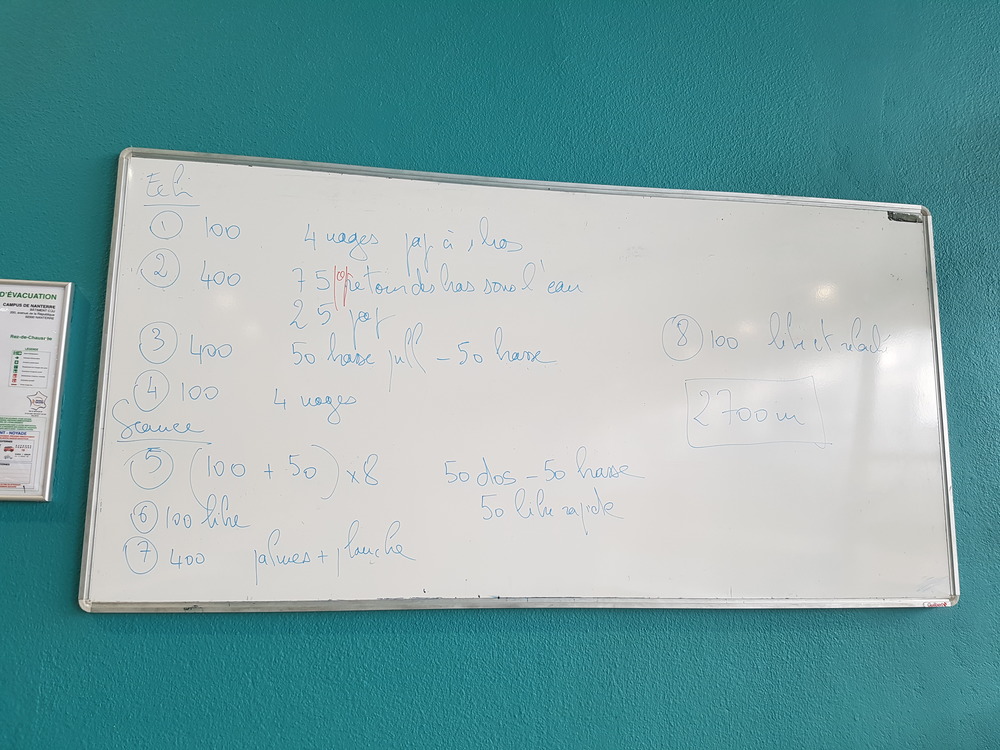 D'ÉVACUATION
CAMPUS DE NANTERRE
Rez-de-Chaussée
Ech
① 100 4 nages pap à 1 bras
② 400 75 pap retour des bras sous l'eau
25 pap
③ 400 50 brasse pull - 50 brasse
④ 100 4 nages
Séance
⑤ (100 + 50) x8 50 dos - 50 brasse
50 libre rapide
⑥ 100 libre
⑦ 400 palmes + planche
⑧ 100 libre et
2700 m